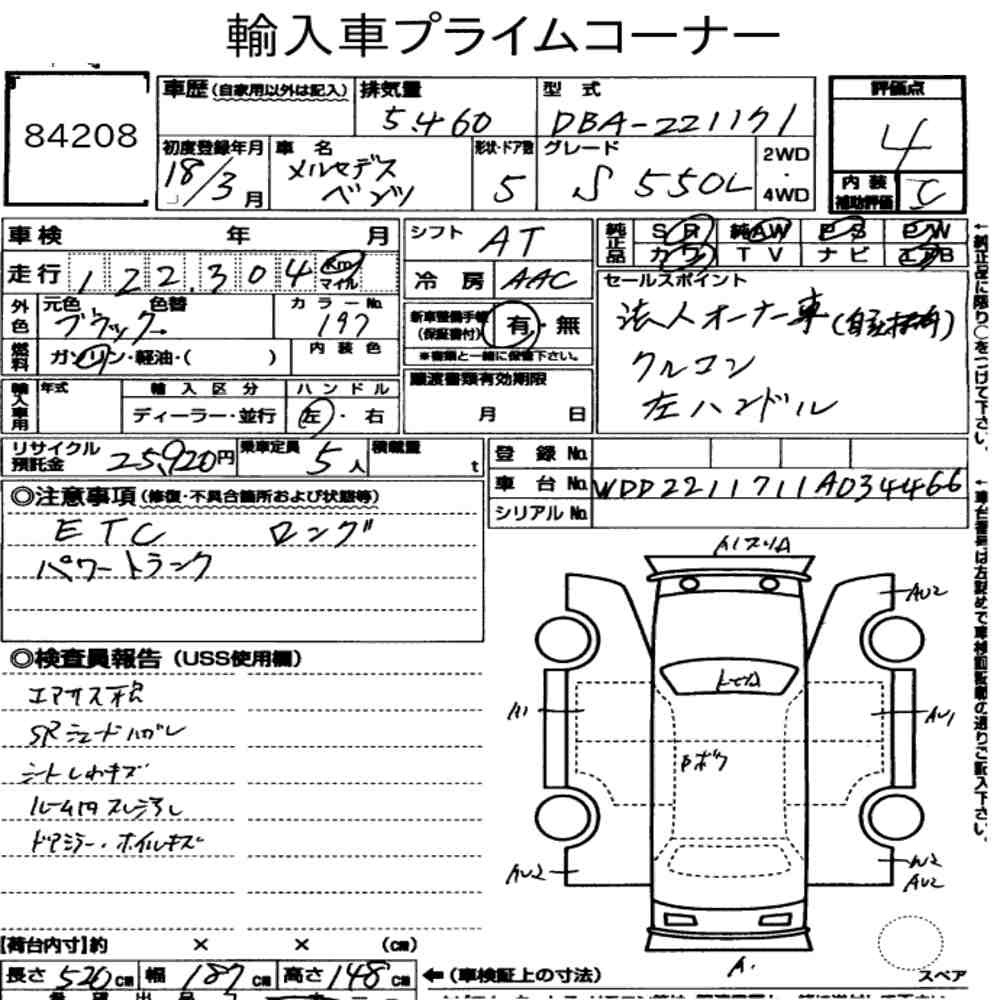 輸入車プライムコーナー
84208
車歴 (自家用以外は記入)
排気量
5.460
型式
DBA-221171
評価点
4
初度登録年月
18/3月
車名
メルセデス
ベンツ
形状・ドア数
5
グレード
S 550L
2WD
・
4WD
内装
補助評価
C
車検 年 月
走行 122,304 Km
マイル
シフト AT
冷房 AAC
純正品
SR 純AW PS PW
カワ TV ナビ エアB
外色
元色 色替
ブラック→
カラーNo.
197
新車整備手帳
(保証書付)
有・無
※書類と一緒に保管下さい。
セールスポイント
法人オーナー車
クルコン
左ハンドル
燃料
ガソリン・軽油・( )
内装色
輸入車用
年式
輸入区分
ディーラー・並行
ハンドル
左・右
譲渡書類有効期限
月 日
←純正品に限り○をつけて下さい。
リサイクル
預託金
25,920円
乗車定員
5人
積載量
t
登録No.
車台No.
WDD2211711A034466
シリアルNo.
◎注意事項 (修復・不具合箇所および状態等)
ETC ロング
パワートランク
◎検査員報告 (USS使用欄)
SRシェードハガレ
シートしわキズ
ルーム内スレ汚レ
ドアミラー・ホイルキズ
AU2
A1
AU1
AU2
AU2
A.
スペア
[荷台内寸]約 × × (cm)
長さ 520cm 幅 187cm 高さ 148cm
←(車検証上の寸法)